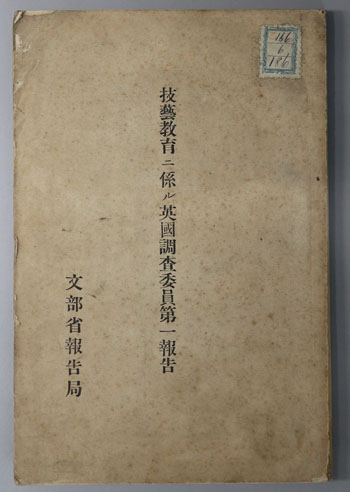 技藝教育ニ係ル英國調査委員第一報告
文部省報告局